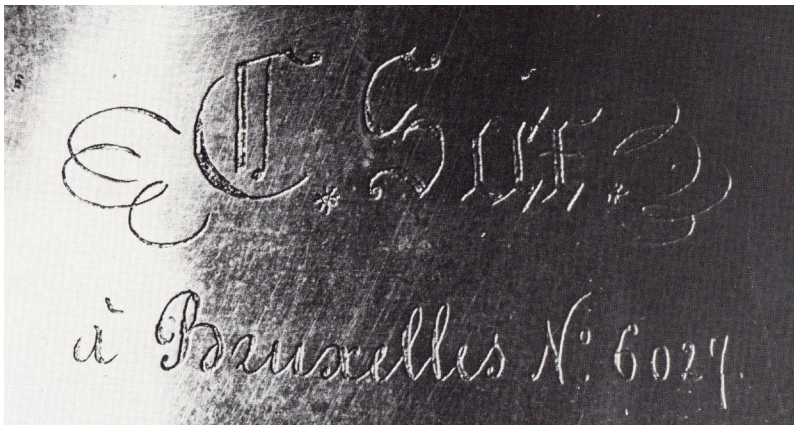 C. Sax.
à Bruxelles N° 6027